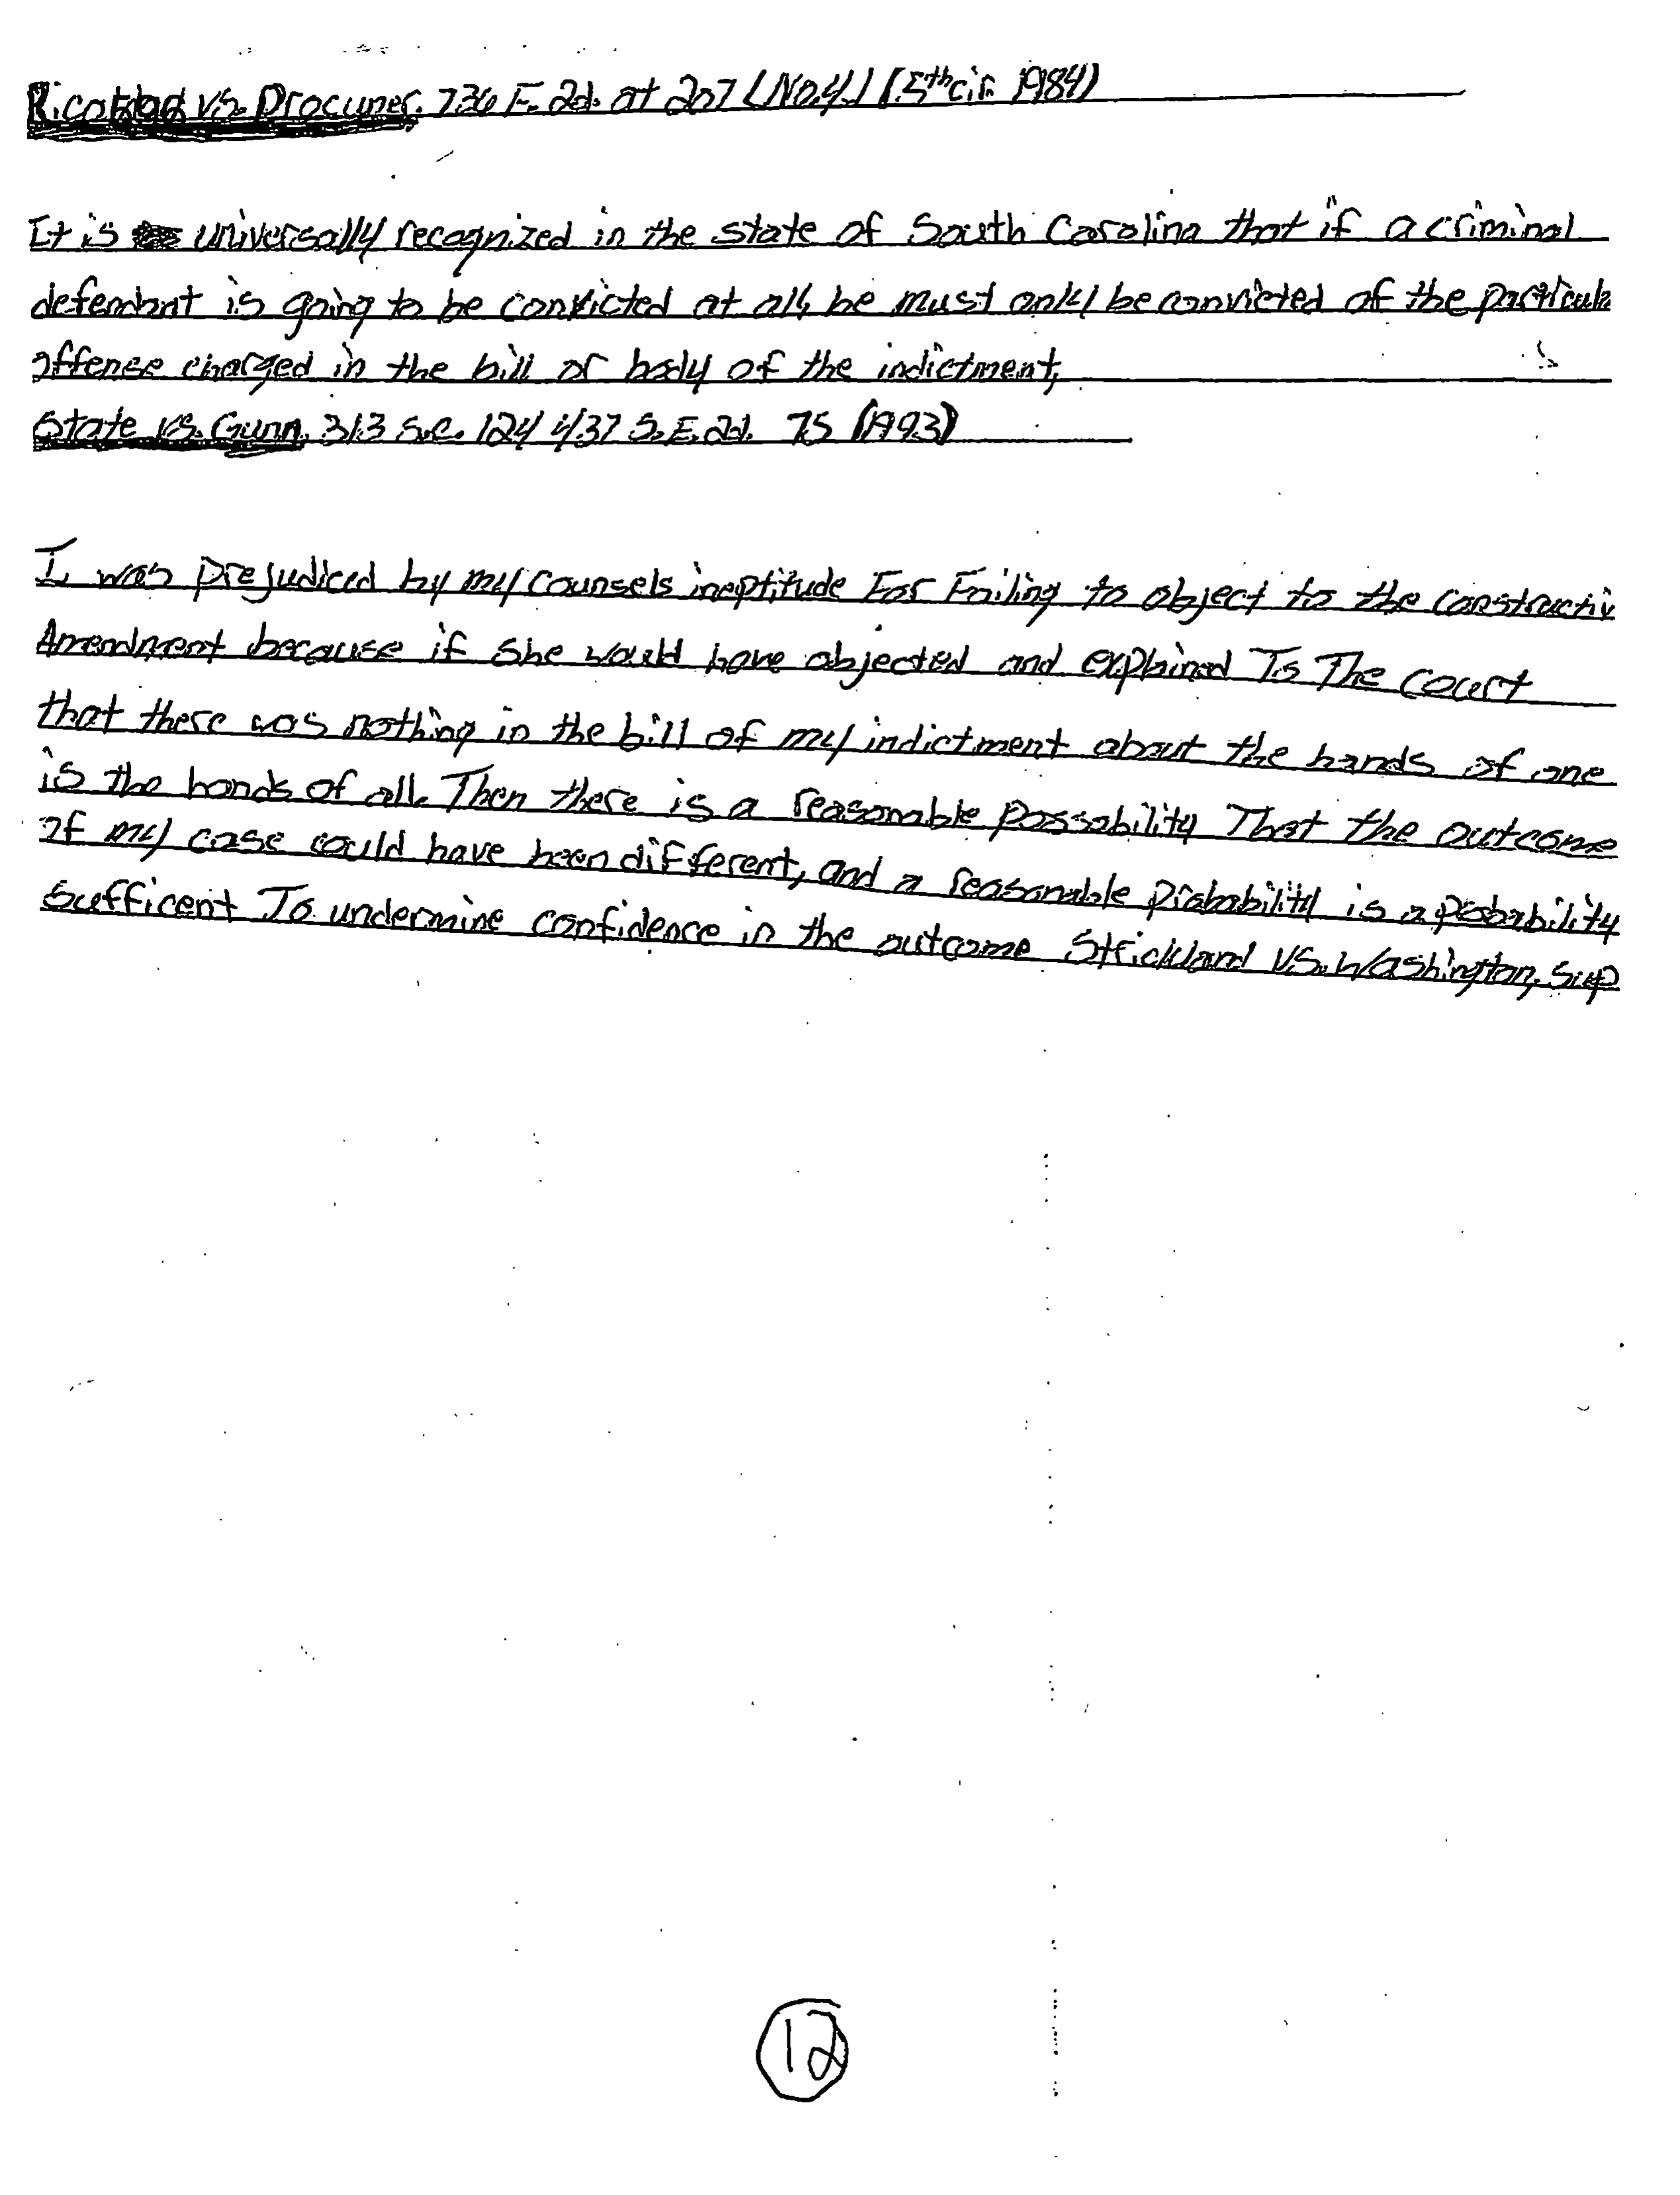 vs. Procuner. 736 F. 2d. at 207 (No.4.) (5th cir. 1984)
It is universally recognized in the state of South Carolina that if a criminal
defendant is going to be convicted at all, he must only be convicted of the particula
offense charged in the bill or body of the indictment,
State vs. Gunn, 313 S.C. 124 437 S.E. 2d. 75 (1993)
I, was prejudiced by my counsels ineptitude For Failing to object to the constructiv
Amendment because if she would have objected and explained To The Court
that there was nothing in the bill of my indictment about the hands of one
is the hands of all. Then there is a reasonable possability That the outcome
of my case could have been different, and a reasonable probability is a probability
sufficent To undermine confidence in the outcome Strickland vs. Washington, sup
12